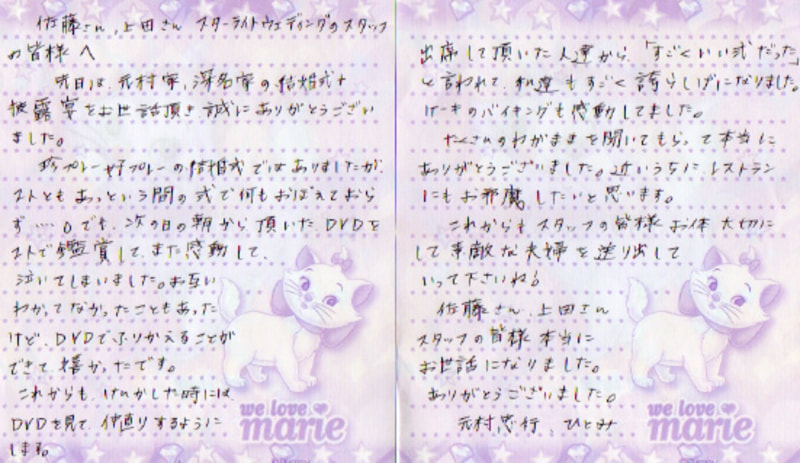 佐藤さん、上田さん スターライトウェディングのスタッフ
の皆様へ
昨日は、元村家、深名家の結婚式+
披露宴をお世話頂き誠にありがとうござい
ました。
珍プレー好プレーの結婚式ではありましたが、
2人ともあっという間の式で何もおぼえておら
ず……。でも、次の日の朝から頂いたDVDを
2人で鑑賞して、また感動して、
泣いてしまいました。お互い
わかってなかったこともあった
けど、DVDでふりかえることが
できて嬉かったです。
これからも、けんかした時には
DVDを見て、仲直りするように
します。
出席して頂いた人達から、「すごくいい式だった」
と言われて、私達もすごく誇らしげになりました。
ケーキのバイキングも感動してました。
たくさんのわがままを聞いてもらって本当に
ありがとうございました。近いうちに、レストラン
にもお邪魔したいと思います。
これからもスタッフの皆様お体大切に
して素敵な夫婦を送り出して
いって下さいね。
佐藤さん、上田さん
スタッフの皆様本当に
お世話になりました。
ありがとうございました。
元村 行、ひとみ
we love
marie
we love
marie